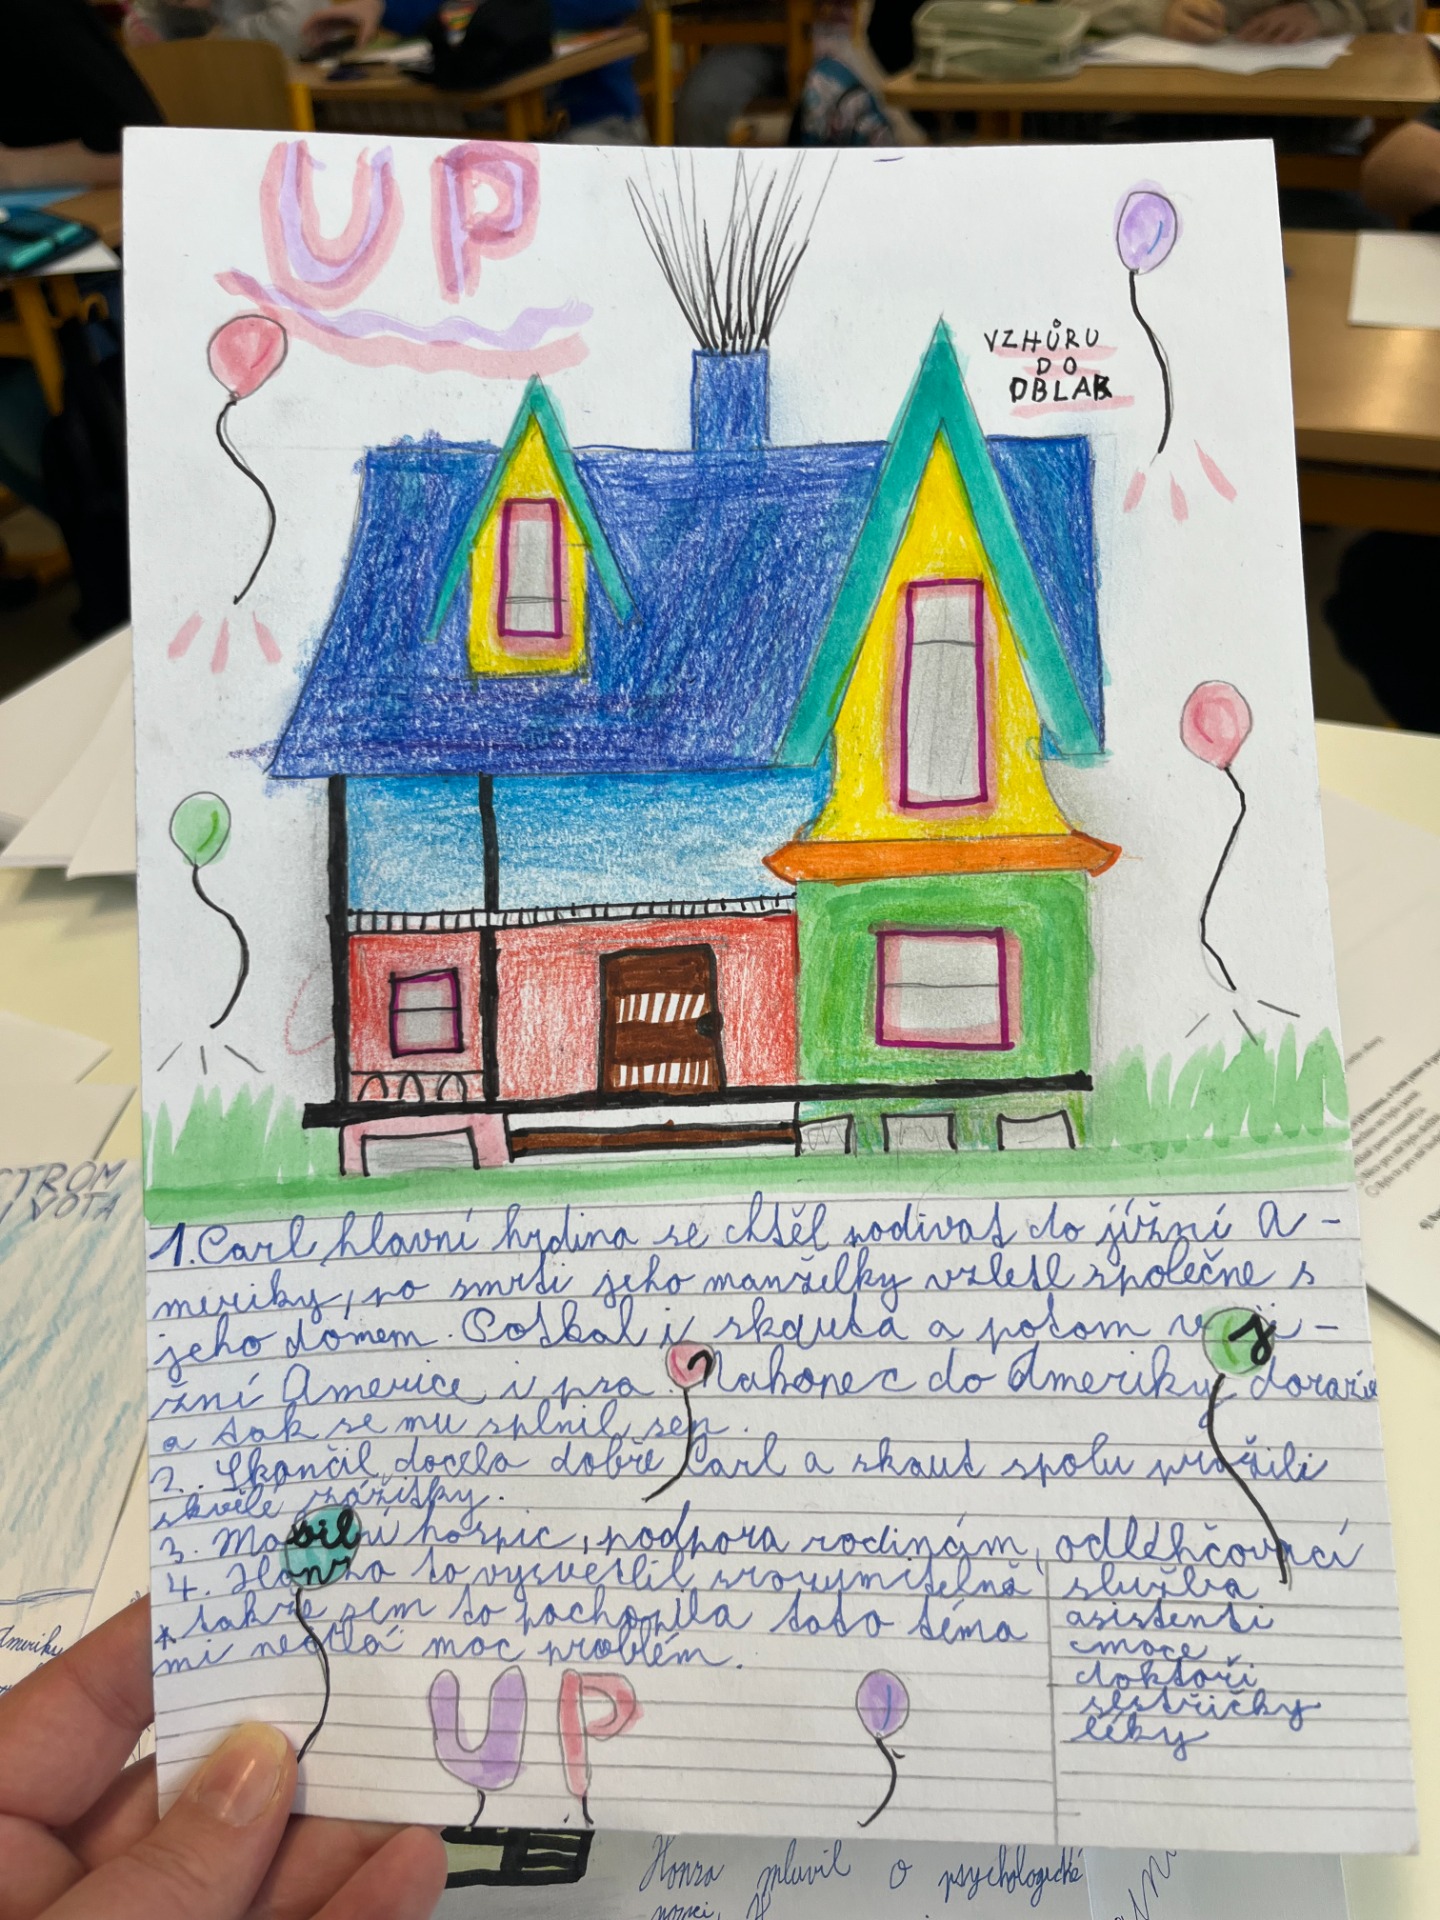 UP
VZHŮRU
DO
OBLAK
1. Carl hlavní hrdina se chtěl podívat do jížní A-
meriky, po smrti jeho manželky vzletl společne s
jeho domem. Potkal i skauta a potom v ji-
žní Americe i psa. Nakonec do Ameriky dorazil
a tak se mu splnil sen.
2. Skončil docela dobře Carl a skaut spolu prožili
skvěle zážitky.
3. Mobilní hospic, podpora rodinám, odlehčovací
služba
asistenti
doktoři
sestřičky
léky
4. Honza to vysvětlil srozumitelně
takže sem to pochopila toto téma
mi nedělá moc problém.
UP
STROM
ŽIVOTA
Ameriky
Honza mluvil o psychologické